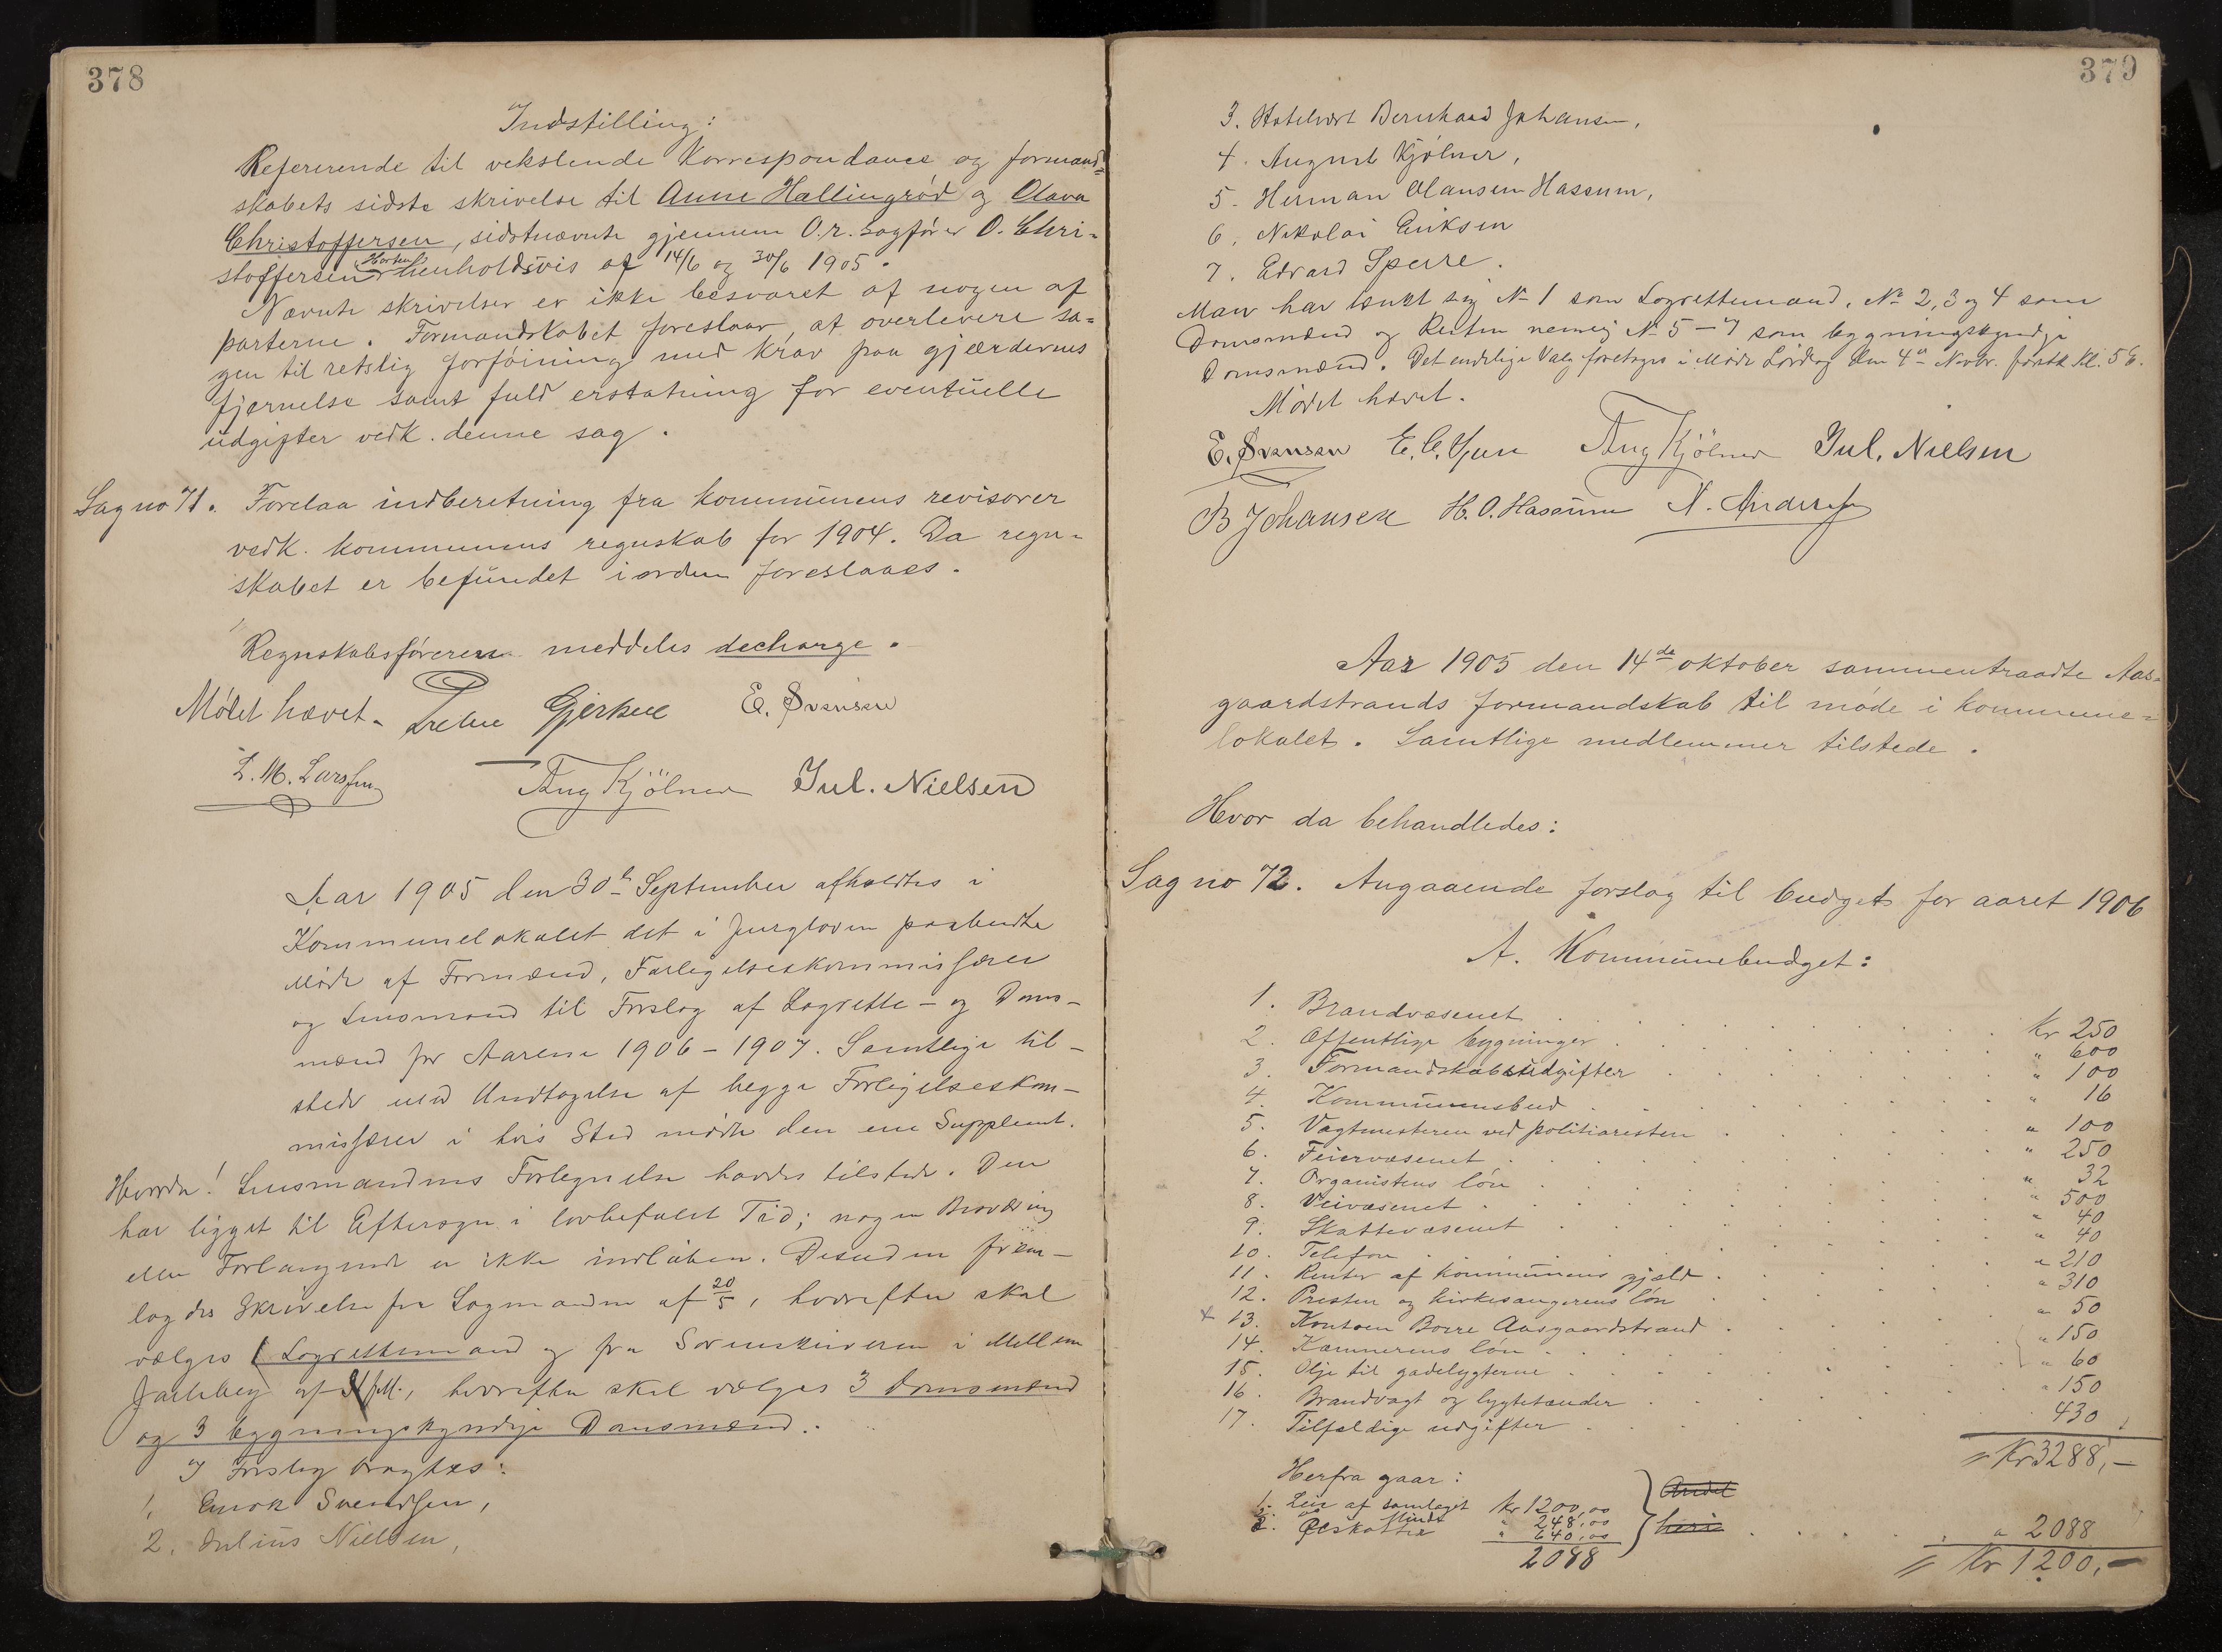 378
Indstilling:
Refererende til vekslende Korrespondance og formand=
skabets sidste skrivelse til Anne Hallingrød og Olava
Christoffersen, sidstnævnte gjennem O.r. sagfører O. Chri-
stoffersen Horten henholdsvis af 14/6 og 30/6 1905.
Nævnte skrivelser er ikke besvaret af nogen af
parterne. Formandskabet foreslaar, at overlevere sa=
gen til retslig forføining med krav paa gjærdernes
fjernelse samt fuld erstatning for eventuelle
udgifter vedk. denne sag.
Sag no 71. Forelaa indberetning fra kommunens revisorer
vedk. kommunens regnskab for 1904. Da regn-
skabet er befundet iorden foreslaaes.
Regnskabsføreren meddeles decharge.
Mødet hævet. Gjersøe E. Svensen
L. M. Larssen Aug Kjölner Jul. Nielsen
Aar 1905 den 30te September afholdtes i
Kommunelokalet det i Juryloven paabudte
Møde af Formænd, Forligelseskommissærer
og Lensmand til Forslag af Lagrette- og Doms-
mænd for Aarene 1906-1907. Samtlige til-
stede med Undtagelse af begge Forligelseskom-
missærer i hvis Sted mødte den ene Supplent.
Hvorda! Lensmandens Fortegnelse havdes tilstede. Den
har ligget til Eftersyn i lovbefalet Tid; nogen
eller Forlangende er ikke indløben. Desuden frem-
lagdes Skrivelse fra Lagmanden af 20/5, hvorefter skal
vælges 1 Lagrettemand og fra Sorenskriveren i Mellem
Jarlsberg af , hvorefter skal vælges 3 Domsmænd
og 3 bygningskyndige Domsmænd.
I Forslag bragtes:
1. Enok Svendsen,
2. Julius Nielsen,
379
3. Hotelvært Bernhard Johansen,
4. August Kjølner,
5. Herman Olausen Hassum,
6. Nikolai Eriksen
7. Edvard Sperre.
Man har tænkt sig No 1 som Lagrettemand, No 2, 3 og 4 som
Domsmænd og Resten nemlig No 5-7 som bygningskyndige
Domsmænd. Det endelige Valg foretages i Møde Lørdag den 4de Novbr. førstk. Kl. 5 E.
Mødet hævet.
E. Svensen Aug Kjölner Jul. Nielsen
B Johansen H. O. Hassum N. Andersen
Aar 1905 den 14de oktober sammentraadte Aas-
gaardstrands formandskab til møde i kommune=
lokalet. Samtlige medlemmer tilstede.
Hvor da behandledes:
Sag no 72. Angaaende forslag til budget for aaret 1906
A. Kommunebudget:
1. Brandvæsenet Kr 250
2. Offentlige bygninger " 600
3. Formandskabsudgifter " 100
4. Kommunensbud " 16
5. Vagtmesteren ved politiaresten " 100
6. Feiervæsenet " 250
7. Organistens løn " 32
8. Veivæsenet " 500
9. Skattevæsenet " 40
10. Telefon " 40
11. Renter af kommunens gjæld " 210
12. Presten og kirkesangerens løn " 310
x 13. Kontoen Borre Aasgaardstrand " 50
14. Kæmnerens løn " 150
15. Olje til gadelygterne " 60
16. Brandvagt og lygtetænder " 150
17. Tilfældige udgifter 430
Kr 3288,-
Herfra gaar:
1. Leie af samlaget kr 1200,00 Andel
" 248,00
2. Ølskatten " 640,00 heri " 2088
2088
Kr 1200,-